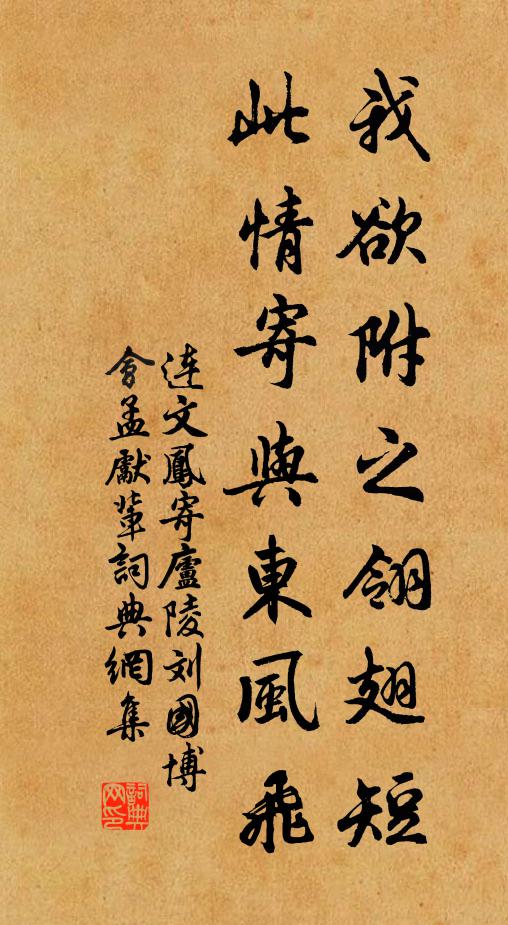 我欲附之翎翅短
此情寄與東風飛
連文鳳寄廬陵刘國博
會孟獻輩詞典網集
詞典網印